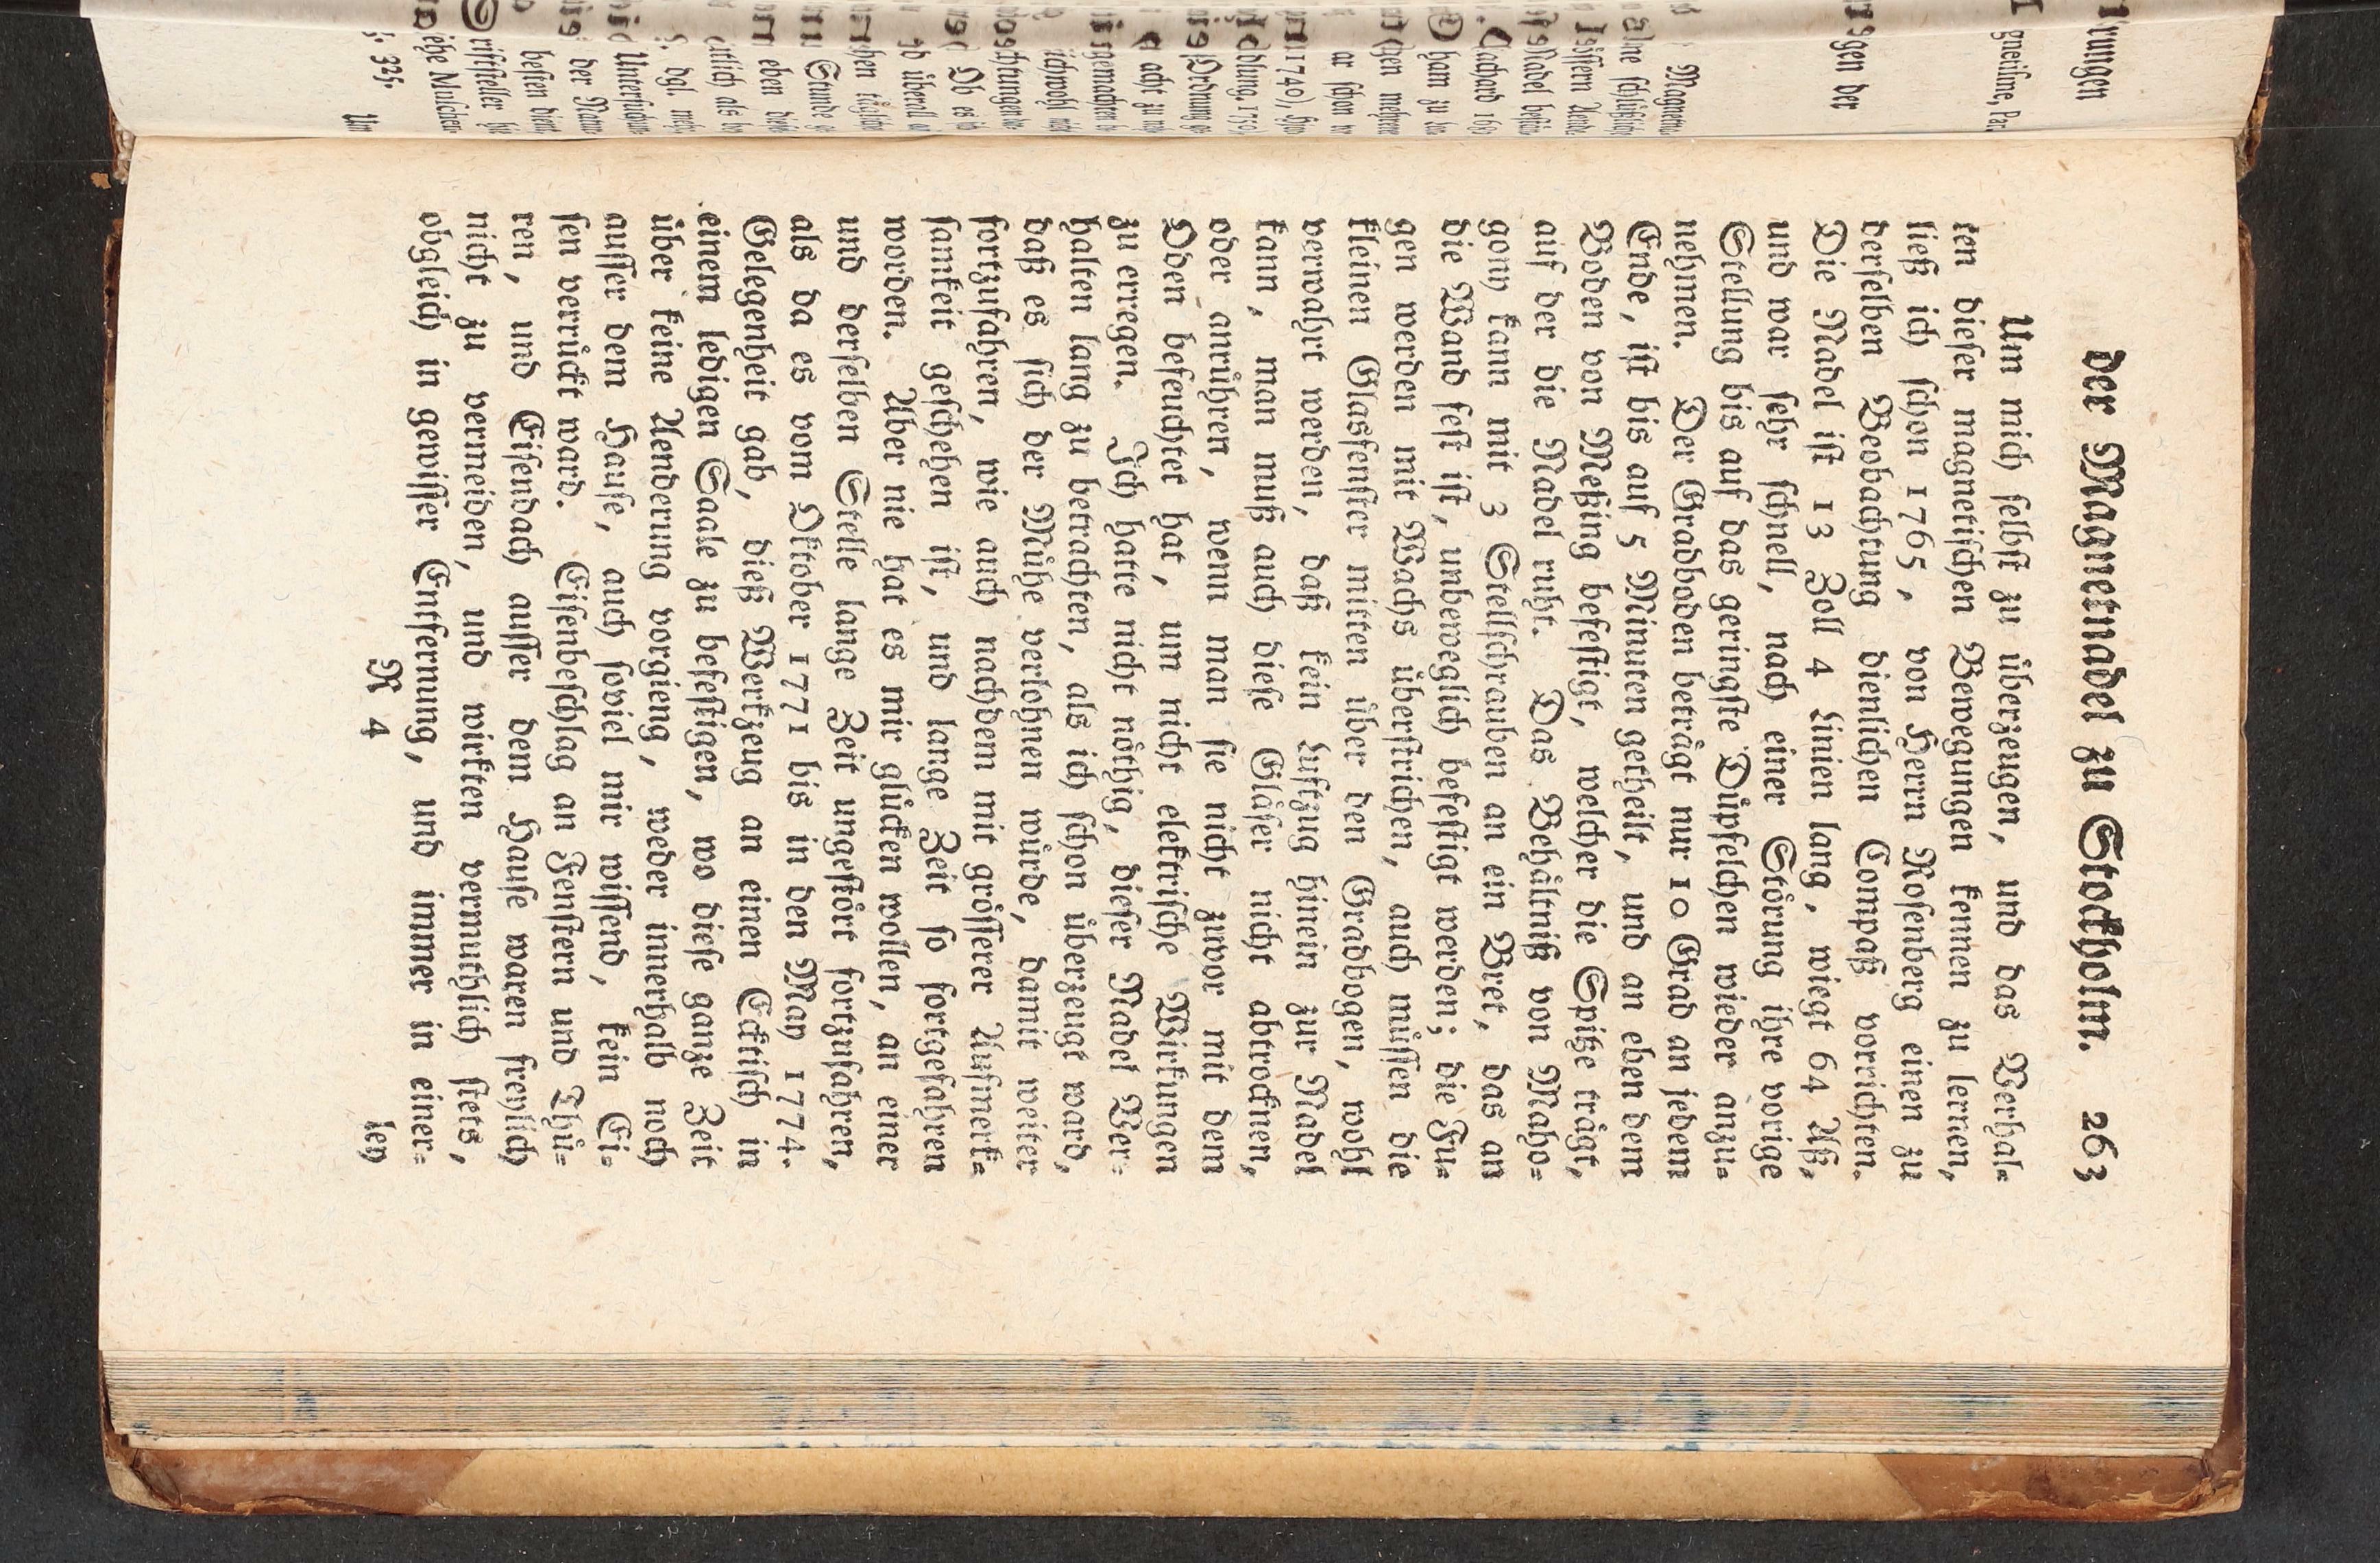 der Magnetnadel zu Stockholm. 263
Um mich selbst zu überzeugen, und das Verhal-
ten dieser magnetischen Bewegungen kennen zu lernen,
ließ ich schon 1765, von Herrn Rosenberg einen zu
derselben Beobachtung dienlichen Compaß vorrichten.
Die Nadel ist 13 Zoll 4 Linien lang, wiegt 64 Aß,
und war sehr schnell, nach einer Störung ihre vorige
Stellung bis auf das geringste Düpfelchen wieder anzu-
nehmen. Der Gradboden beträgt nur 10 Grad an jedem
Ende, ist bis auf 5 Minuten getheilt, und an eben dem
Boden von Meßing befestigt, welcher die Spitze trägt,
auf der die Nadel ruht. Das Behältniß von Maho-
gony kann mit 3 Stellschrauben an ein Bret, das an
die Wand fest ist, unbeweglich befestigt werden; die Fu-
gen werden mit Wachs überstrichen, auch müssen die
kleinen Glasfenster mitten über den Gradbogen, wohl
verwahrt werden, daß kein Luftzug hinein zur Nadel
kann, man muß auch diese Gläser nicht abtrocknen,
oder anrühren, wenn man sie nicht zuvor mit dem
Oden befeuchtet hat, um nicht elektrische Wirkungen
zu erregen. Ich hatte nicht nöthig, dieser Nadel Ver-
halten lang zu betrachten, als ich schon überzeugt ward,
daß es sich der Mühe verlohnen würde, damit weiter
fortzufahren, wie auch nachdem mit grösserer Aufmerk-
samkeit geschehen ist, und lange Zeit so fortgefahren
worden. Aber nie hat es mir glücken wollen, an einer
und derselben Stelle lange Zeit ungestört fortzufahren,
als da es vom Oktober 1771 bis in den May 1774.
Gelegenheit gab, dieß Werkzeug an einen Ecktisch in
einem ledigen Saale zu befestigen, wo diese ganze Zeit
über keine Aenderung vorgieng, weder innerhalb noch
ausser dem Hause, auch soviel mir wissend, kein Ei-
sen verrückt ward. Eisenbeschlag an Fenstern und Thü-
ren, und Eisendach ausser dem Hause waren freylich
nicht zu vermeiden, und wirkten vermuthlich stets,
obgleich in gewisser Entfernung, und immer in einer-
R 4
ley